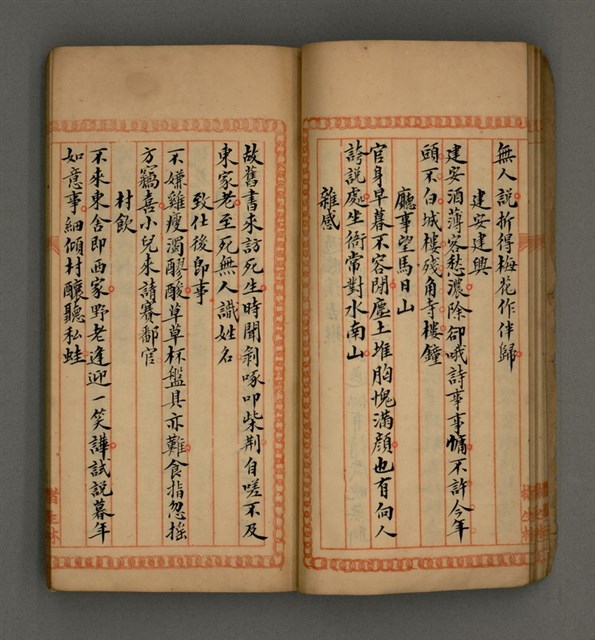 無人說折得梅花作伴歸
建安建興
建安酒薄客愁濃除卻哦詩事事慵不許今年
頭不白城樓殘角寺樓鐘
廳事望馬目山
官身早暮不容閒塵土堆胸愧滿顏也有向人
誇說處坐衙常對水南山
雜感
故舊書來訪死生時聞剝啄叩柴荆自嗟不及
東家老至死無人識姓名
致仕後即事
不嫌雞瘦濁醪酸草草杯盤具亦難食指忽搖
方竊喜小兒來請賽鄰官
村飲
不來東舍即西家野老逢迎一笑譁試說暮年
如意事細傾村釀聽私蛙